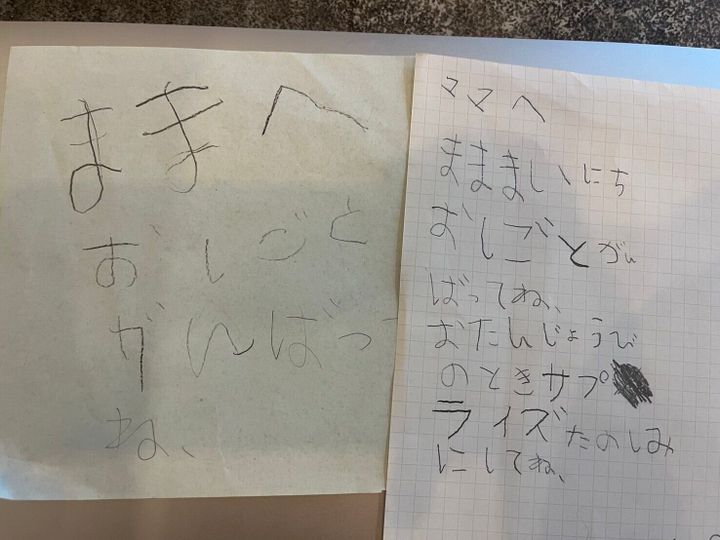 ままへ
おしごと
がんばっ
ね、
ママへ
まままいにち
おしごとがん
ばってね、
おたんじょうび
のときサプ
ライズたのしみ
にしてね、